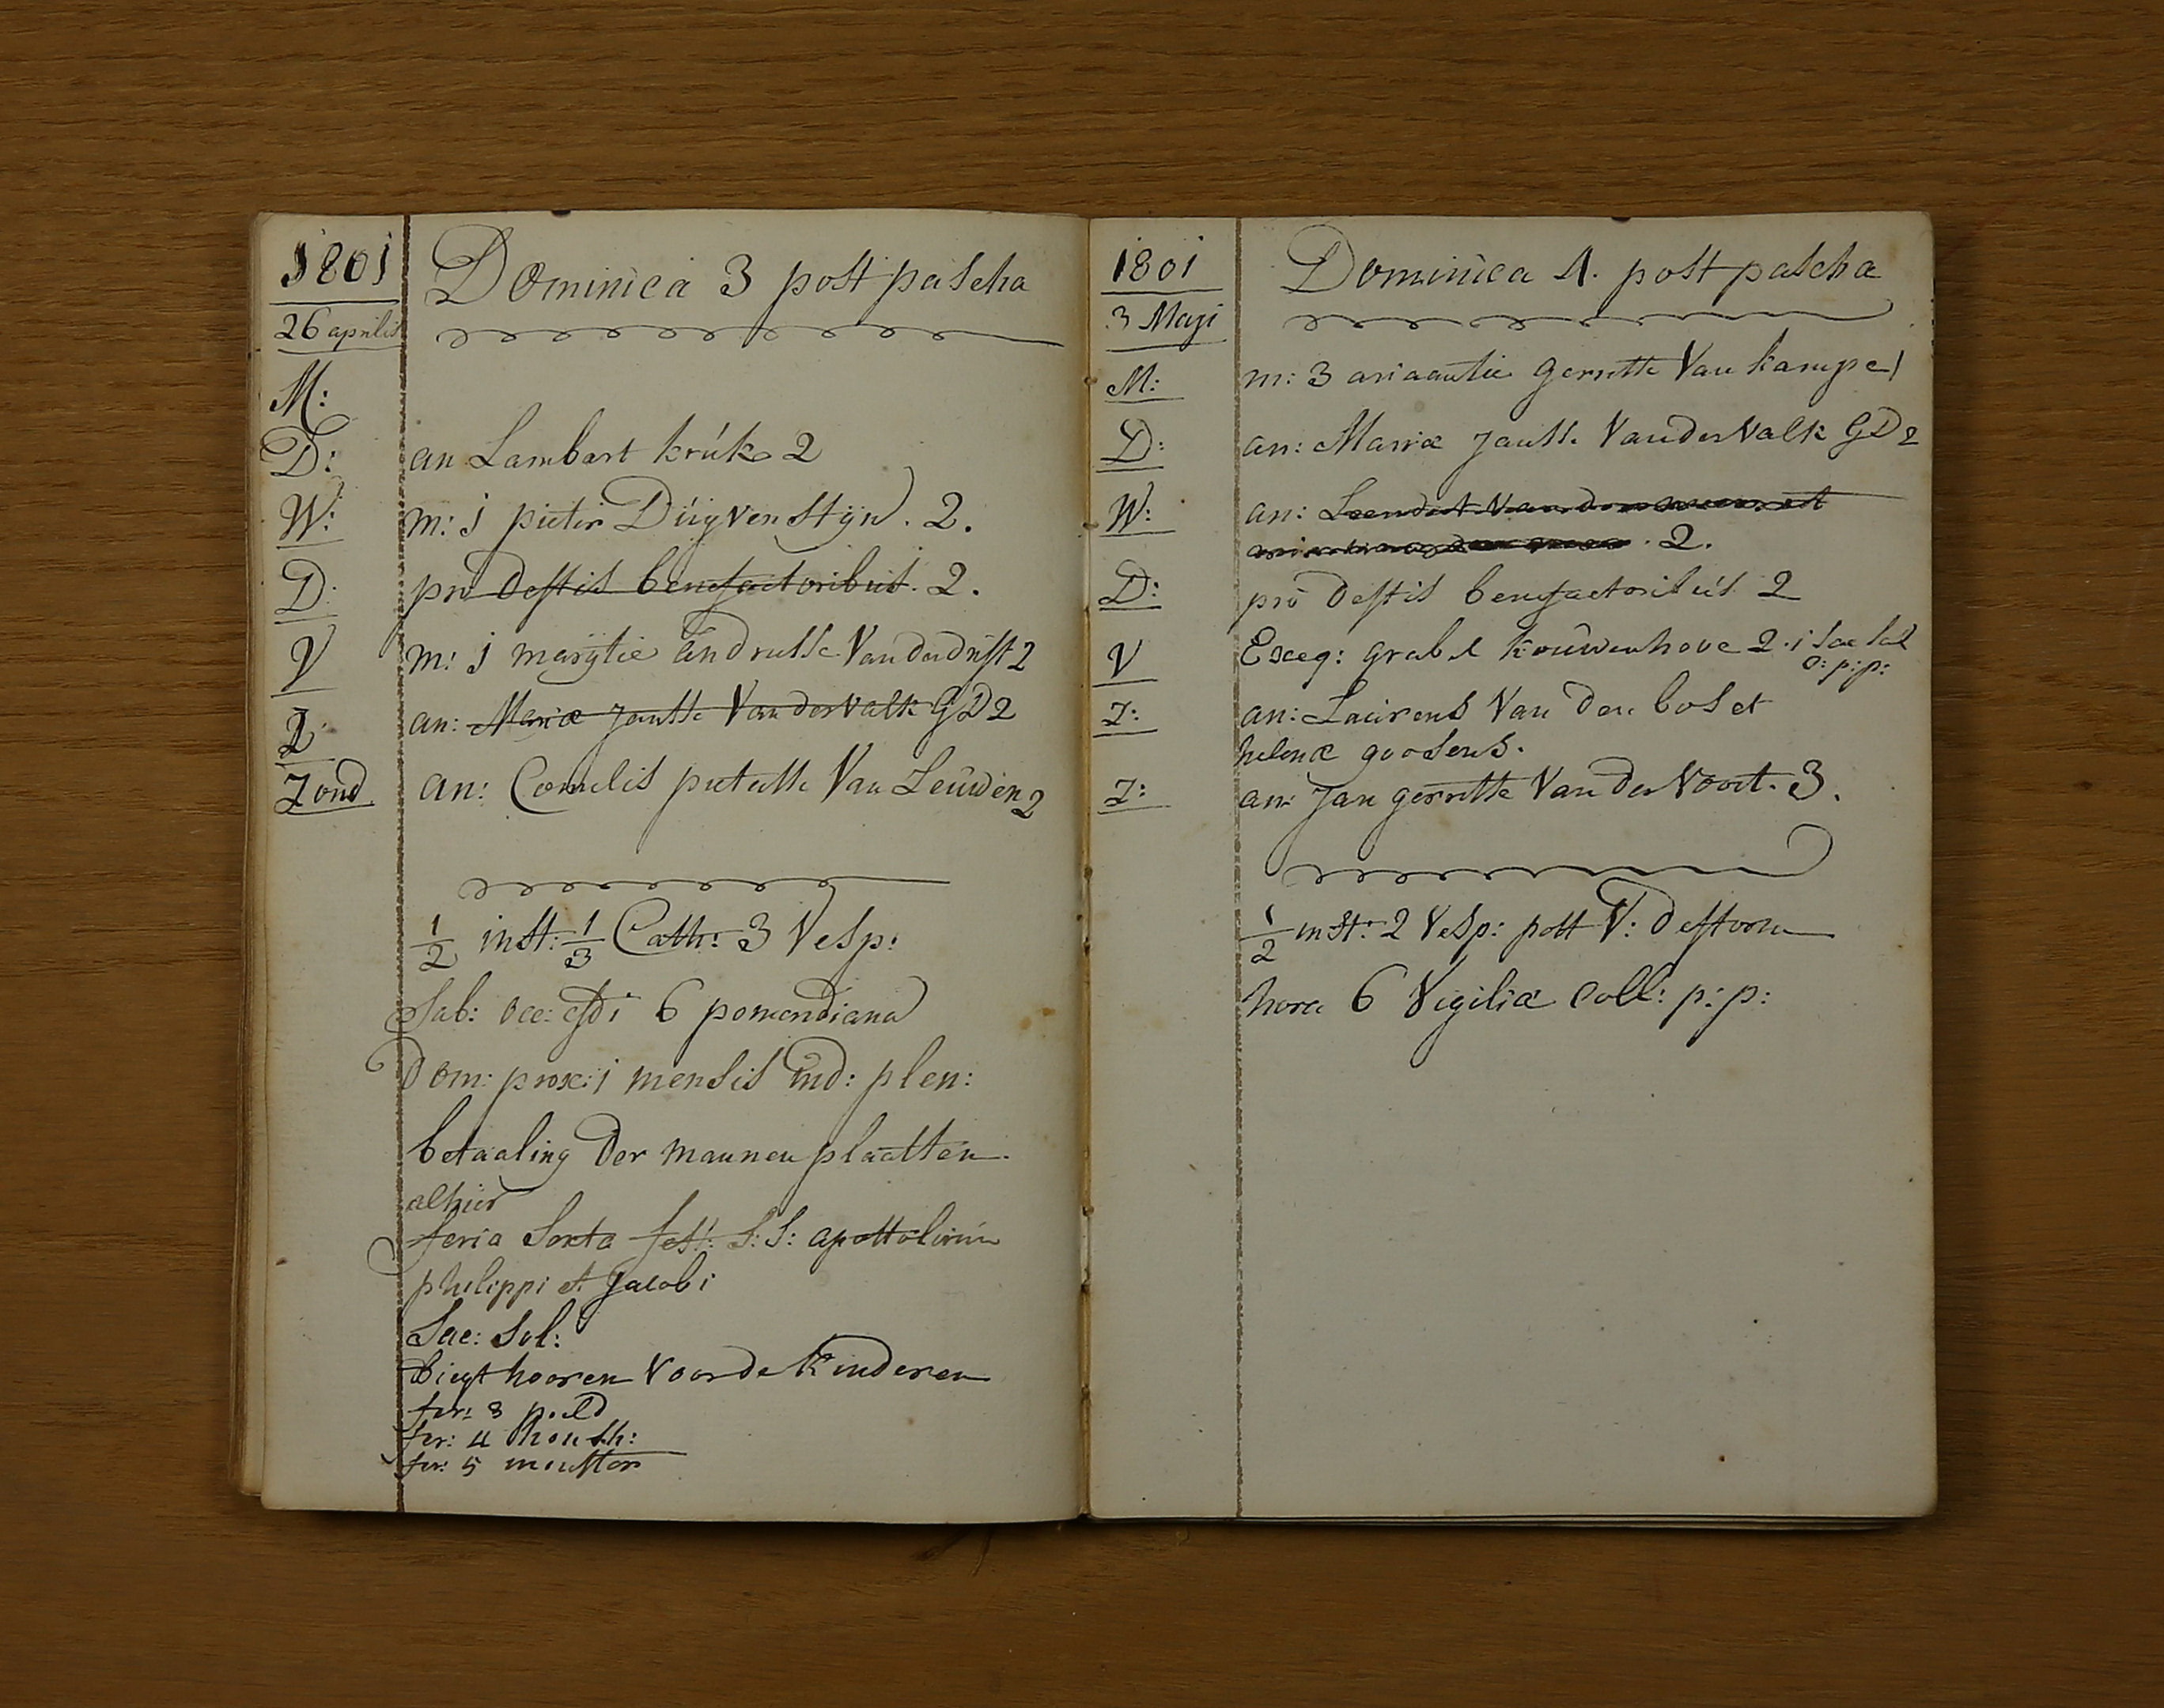 1801
Dominica 3 post pascha
26 aprilis
M:
D: an Lambart krúk 2
W: m: 1 pieter Dúijvenstijn. 2.
D: pro deftis benefactoribus. 2.
V m: 1 marijtie andriesse Van der drift 2
Z an: Mariæ Jansse Van der Valk GD 2
Zond an: Cornelis pieterse Van Leúwen 2
1/2 inst: 1/3 Cath: 3 Vesp:
Sab: occ: cfdi 6 pomeridiana
Dom: prox: 1 mensis ind: plen:
betaaling der mannen plaatsen
alhier
feria Sexta fest: S: S: apostolorúm
philippi et Jacobi
Sac: Sol:
biegt hooren Voor de Kinderen
fer: 3 poeld
fer: 4 honsh:
fer: 5 monster
1801
Dominica 4. post pascha
3 Maji
M: m: 3 ariaantie gerritse Van kampe 1
D: an: Mariæ Jansse Van der Valk GD 2
W: an: Leendert Van der et
2.
D: pro deftis benefactoribús 2
V Exeq: grabel koúwenhove 2. 1 Sac Sol
o: p: p:
Z: an: Laúrens Van den bos et
helenæ goosens.
Z: an: Jan gerritse Van der Voort. 3.
1/2 inst: 2 Vesp: post V: deftorum
hora 6 Vigiliæ Coll: p: p: